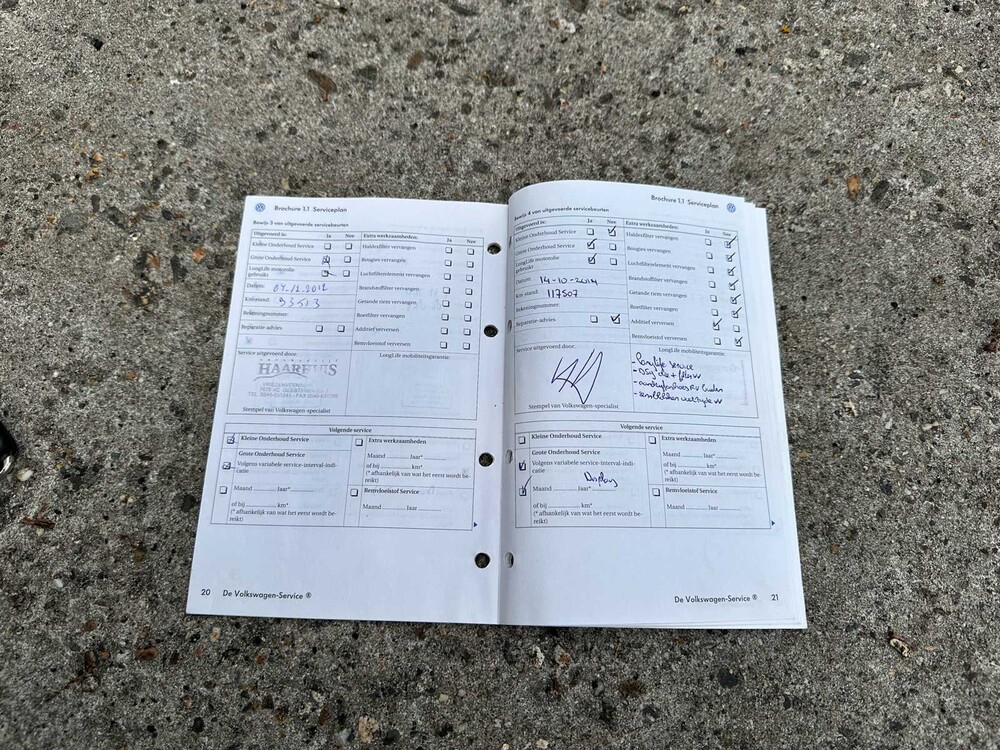 Brochure 1.1 Serviceplan
Bewijs 3 van uitgevoerde servicebeurten
Uitgevoerd is: Ja Nee
Kleine Onderhoud Service
Grote Onderhoud Service
LongLife motorolie
gebruikt
Datum: 04.12.2012
Km stand: 93513
Rekeningnummer:
Reparatie-advies
Extra werkzaamheden: Ja Nee
Haldexfilter vervangen
Bougies vervangen
Luchtfilterelement vervangen
Brandstoffilter vervangen
Getande riem vervangen
Roetfilter vervangen
Additief verversen
Remvloeistof verversen
Service uitgevoerd door:
HAARHUIS
Stempel van Volkswagen-specialist
LongLife mobiliteitsgarantie:
Volgende service
Kleine Onderhoud Service
Grote Onderhoud Service
Volgens variabele service-interval-indi-
catie
Maand Jaar*
of bij km*
(* afhankelijk van wat het eerst wordt be-
reikt)
Extra werkzaamheden
Maand Jaar*
of bij km*
(* afhankelijk van wat het eerst wordt be-
reikt)
Remvloeistof Service
Maand Jaar
20 De Volkswagen-Service ®
Brochure 1.1 Serviceplan
Bewijs 4 van uitgevoerde servicebeurten
Uitgevoerd is: Ja Nee
Kleine Onderhoud Service
Grote Onderhoud Service
LongLife motorolie
gebruikt
Datum: 14-10-2014
Km stand: 117507
Rekeningnummer:
Reparatie-advies
Extra werkzaamheden: Ja Nee
Haldexfilter vervangen
Bougies vervangen
Luchtfilterelement vervangen
Brandstoffilter vervangen
Getande riem vervangen
Roetfilter vervangen
Additief verversen
Remvloeistof verversen
Service uitgevoerd door:
Stempel van Volkswagen-specialist
LongLife mobiliteitsgarantie:
- Longlife service
- DSG olie + filter VV
Volgende service
Kleine Onderhoud Service
Grote Onderhoud Service
Volgens variabele service-interval-indi-
catie
Display
Maand Jaar*
of bij km*
(* afhankelijk van wat het eerst wordt be-
reikt)
Extra werkzaamheden
Maand Jaar*
of bij km*
(* afhankelijk van wat het eerst wordt be-
reikt)
Remvloeistof Service
Maand Jaar
De Volkswagen-Service ® 21